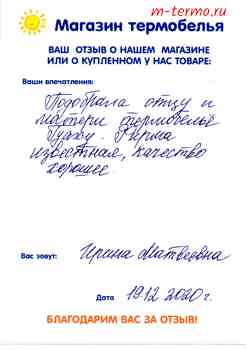 m-termo.ru
Магазин термобелья
ВАШ ОТЗЫВ О НАШЕМ МАГАЗИНЕ
ИЛИ О КУПЛЕННОМ У НАС ТОВАРЕ:
Ваши впечатления:
Подобрала отцу и
матери термобельё
Гуаху. Фирма
известная, качество
хорошее.
Вас зовут: Ирина Матвеевна
Дата 19.12.2020 г.
БЛАГОДАРИМ ВАС ЗА ОТЗЫВ!